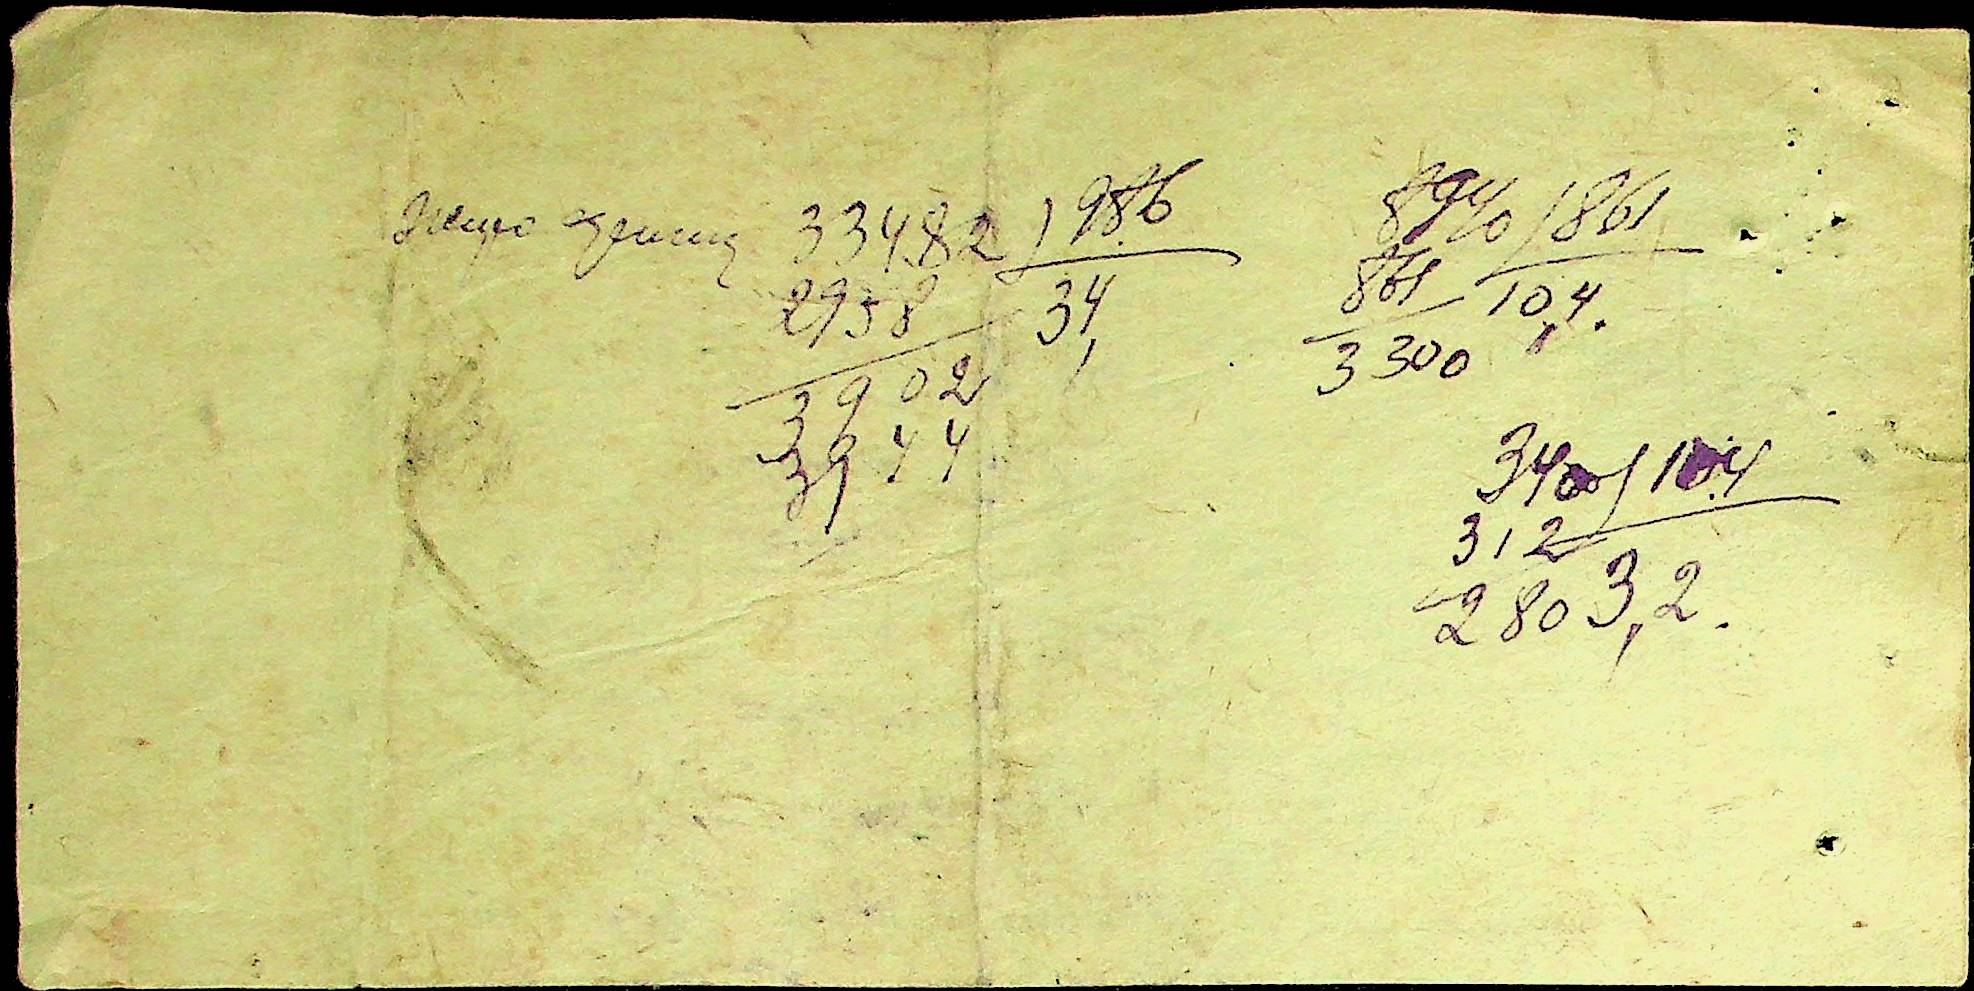 33482 | 986
2958 34,
3902
3944
8940 | 861
861 10,4.
3300
3400 | 10.4
312
280 3,2.